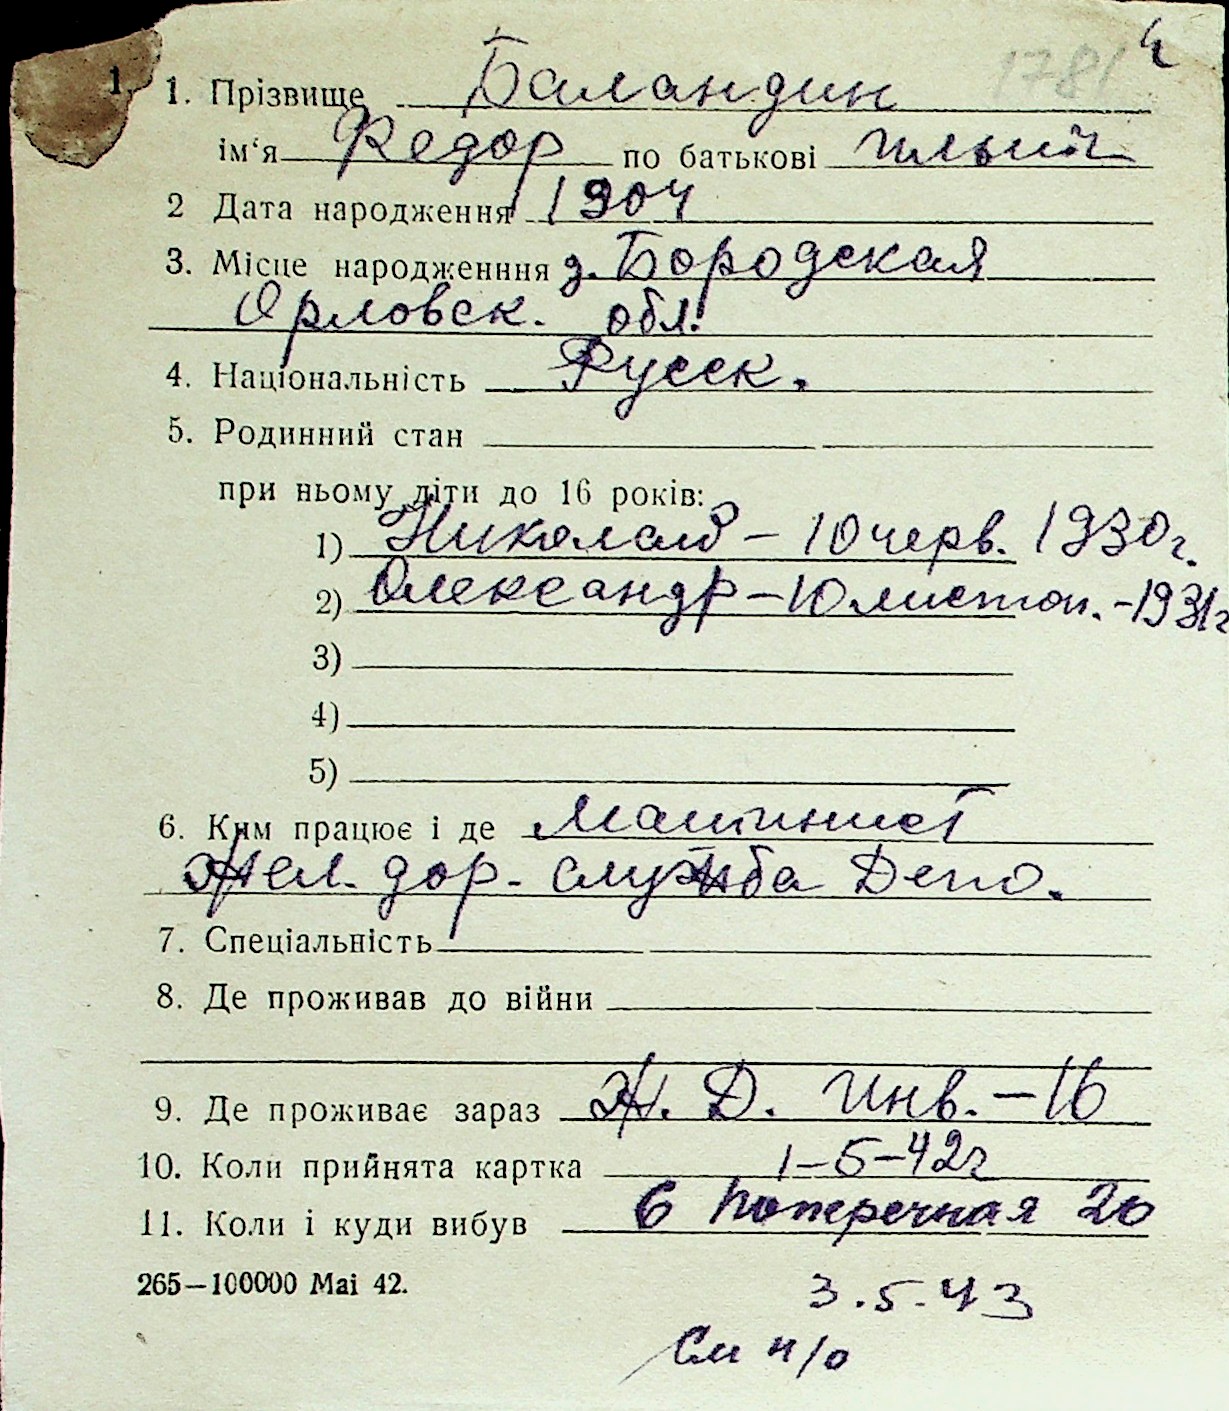 1781 4
1. 1. Прізвище Баландин
ім‘я Федор по батькові Ильич
2 Дата народження 1904
3. Місце народженння д. Бородская
Орловск. обл.
4. Національність Русск.
5. Родинний стан
при ньому діти до 16 років:
1) Николай – 10 черв. 1930г.
2) Олександр – 10 листоп. - 1931г
3)
4)
5)
6. Ким працює і де Машинист
Жел. дор. служба Депо.
7. Спеціальність
8. Де проживав до війни
9. Де проживає зараз Ж. Д. Инв. – 16
10. Коли прийнята картка 1–5–42г
11. Коли і куди вибув 6 Поперечная 20
265—100000 Mai 42.
3.5.43
См н/о